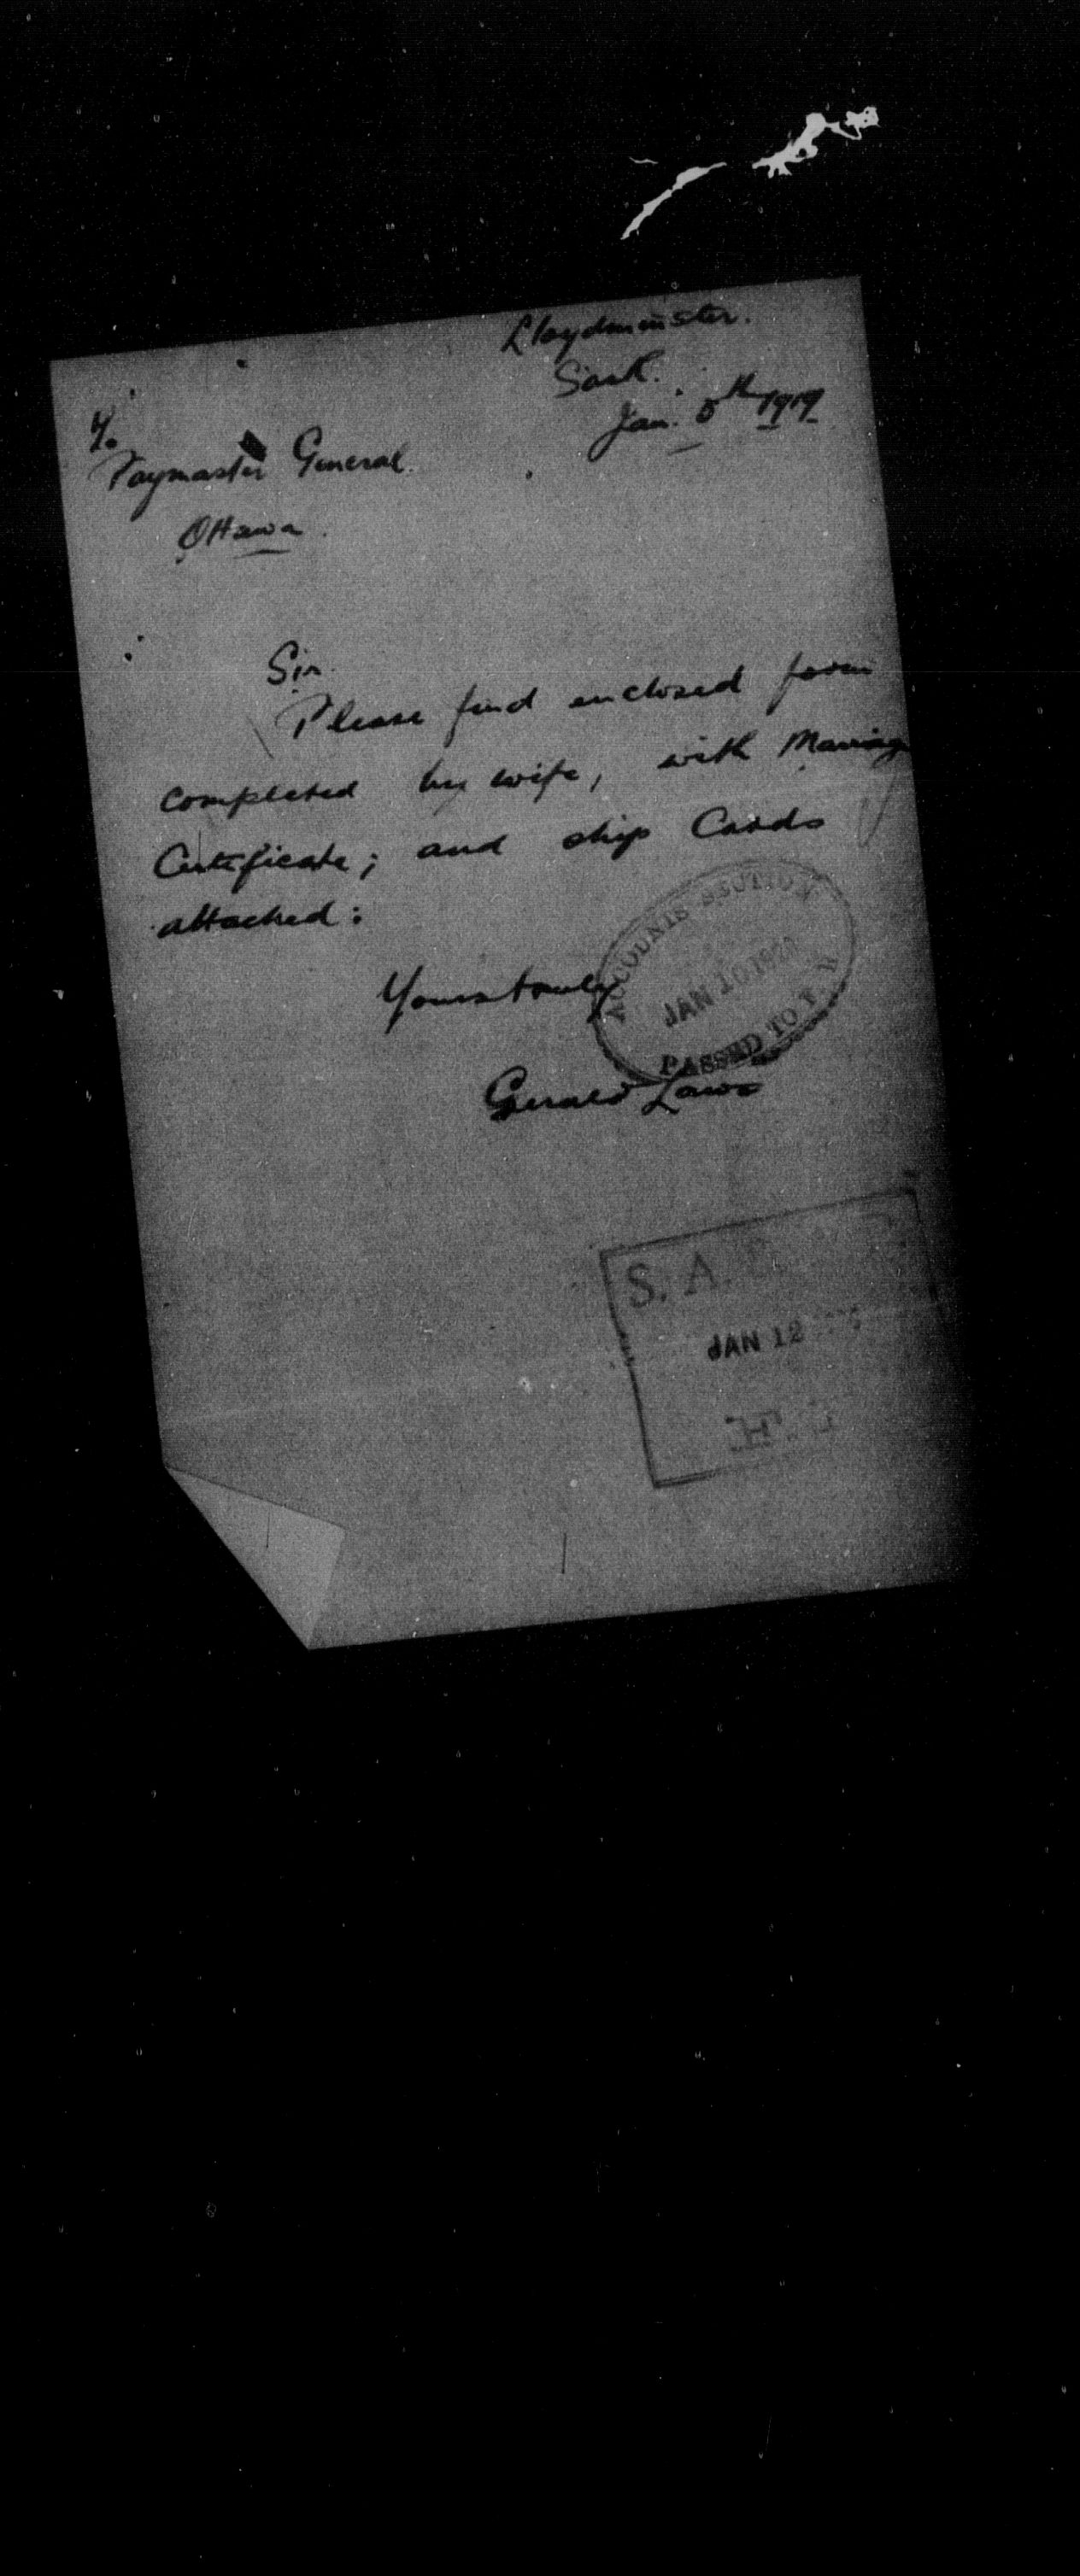 Lloydminster.
Sask.
Jan. 5th 1919
To
Paymaster General.
Ottawa.
Sir.
Please find enclosed form
completed by wife, with Marriage
Certificate; and ship Cards
attached:
Yours truly
Gerald Laws
ACCOUNTS SECTION
JAN 10 1920
PASSED TO
S. A.
JAN 12